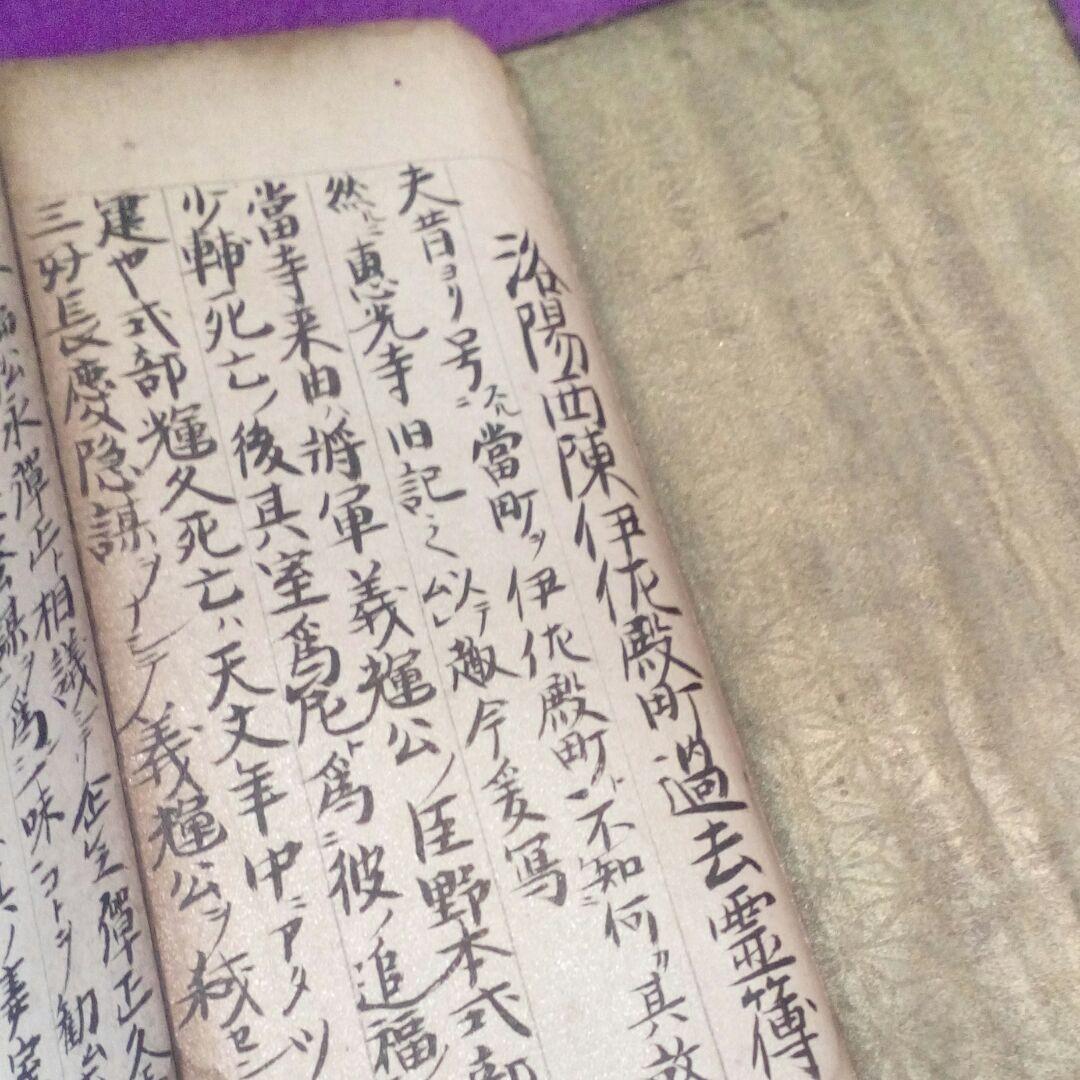 洛陽西陳伊佐殿町過去霊簿
夫昔ヨリ号ニ當町ヲ伊佐殿町ト不知何ヵ其故
然ニ恵光寺旧記之以テ趣今爰写
當寺来由ハ将軍義輝公ノ臣野本式部
少輔死亡ノ後其室為尼ト為ニ彼ノ追福
建也式部輝久死亡ハ天文年中ニアタツ
三好長慶隠謀ヲナシテ義輝公ヲ
松永弾正ト相議シテ企全弾正久
謀ヲ為シ味コトヲ勧
其ノ妻室